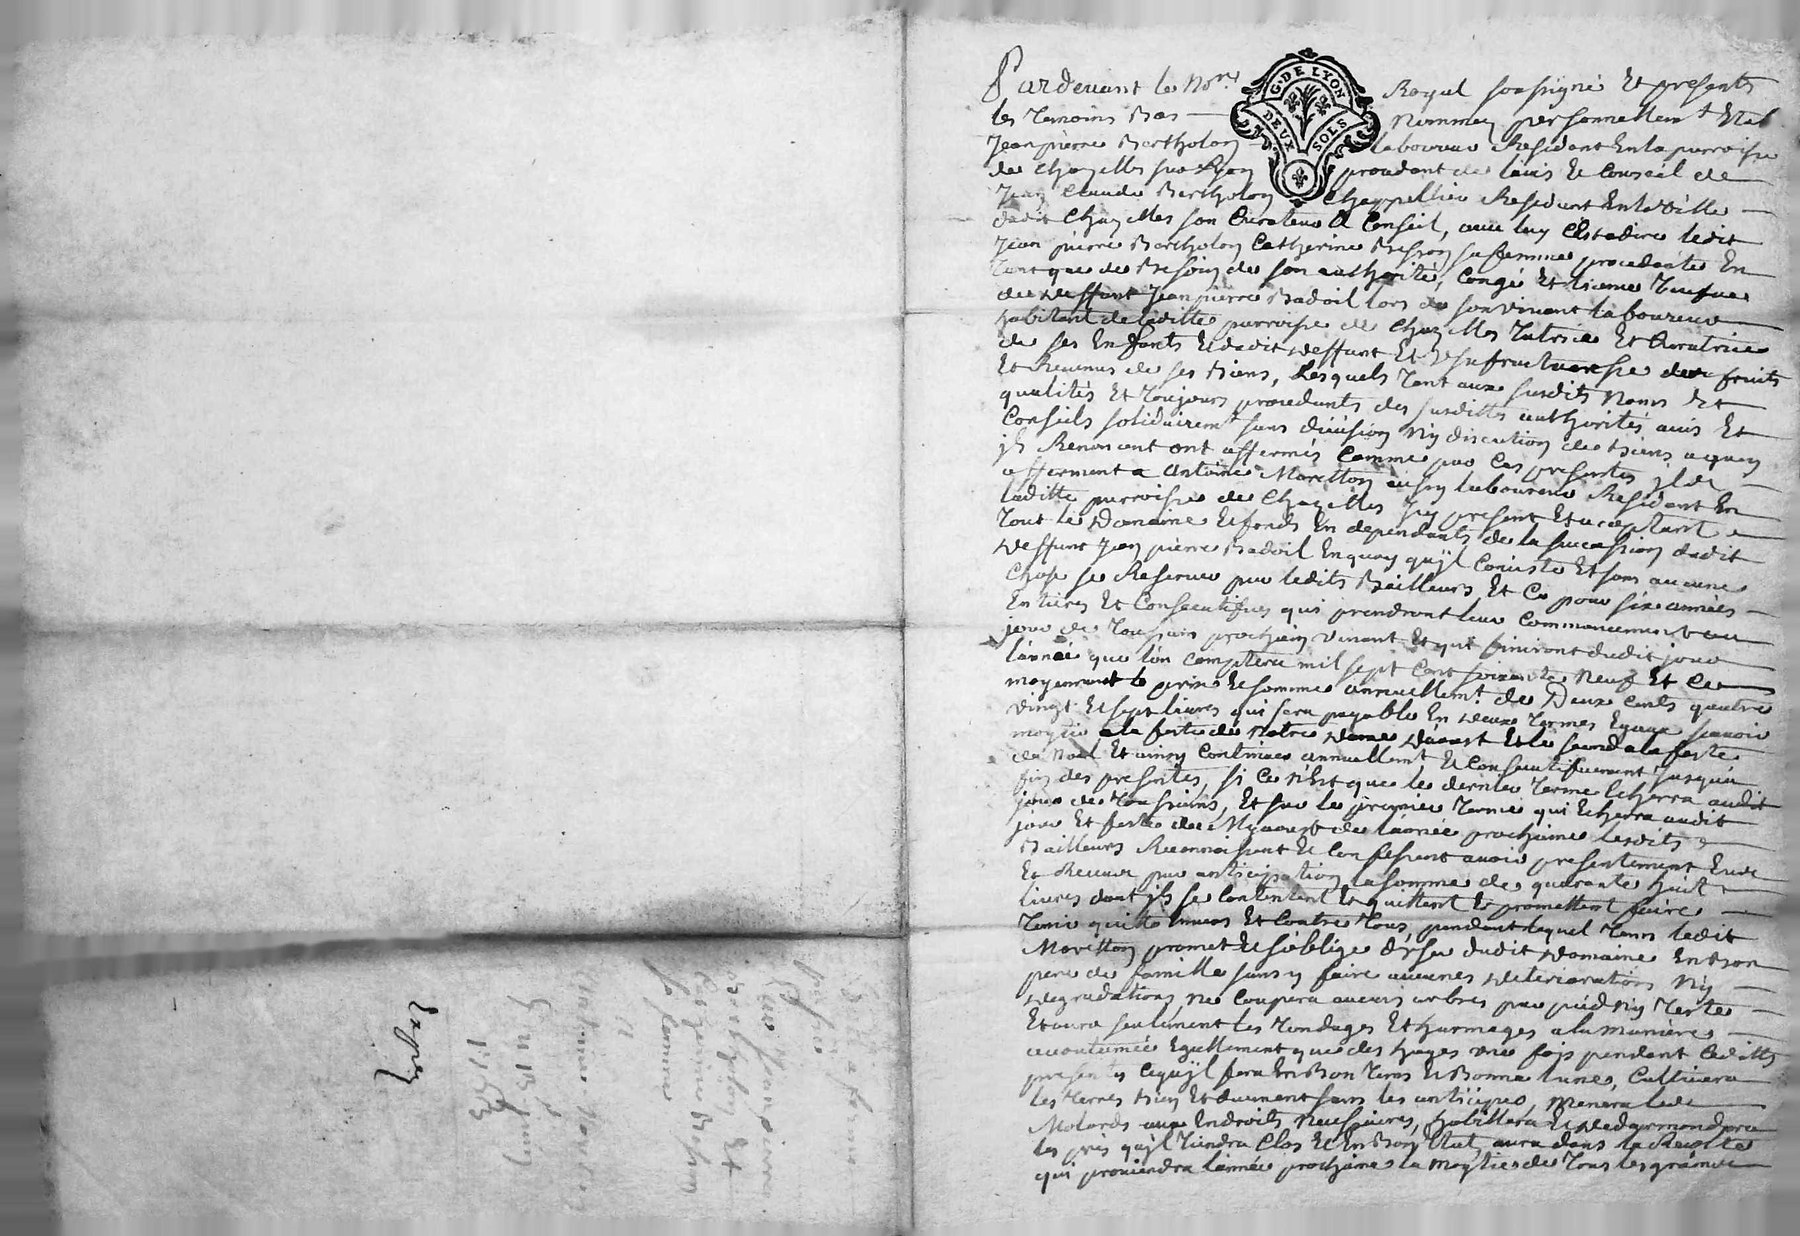 G. DE LYON
DEUX SOLS
Pardevant le Nore. Royal soussigné Et presents
les Temoins Bas Nommez personnellemt. Etab
Jeanpierre Bertholon laboureur Residant En la parroisse
de Chazelles sur Lyon procedant de lavis Et Conseil de
Jean Claude Bertholon Chappellier Residant En la Ville
dudit Chazelles son Curateur Et Conseil, avec luy Cestadire ledit
Jean pierre Bertholon Catherine Besson sa femme procedante En
Tant que de Besoin de son authorité, Congé Et licence
de deffunt Jeanpierre Badoil lors de son vivant laboureur
habitant de laditte parroisse de Chazelles Tutrice Et Curatrice
de ses Enfants Et dudit deffunt Et Usufructuaresse des fruits
Et Revenus de ses Biens, Lesquels Tant aux susdits Noms Et
qualités Et Toujours procedants des susdittes authorités avis Et
Conseils solidairemt. sans division Ny discution de Biens aquoy
ils Renoncent ont affermés Comme par Ces presentes ils
afferment a Antoine Moretton aussy laboureur Residant En
laditte parroisse de Chazelles Icy present Et acceptant
Tout le Domaine Et fonds En dependants de la succession dudit
deffunt Jean pierre Badoil Enquoy quil Consiste Et sans aucune
Chose se Reserver par ledits Bailleurs Et Ce pour six années
Entieres Et Consecutifves qui prendront leur Commancement au
jour de Toussain prochain venant Et qui finiront dudit jour
lannée que lon Comptera mil sept Cent soixante Neuf Et Ce
moyennant le prix Et somme annuellemt. de Deux Cents quatre
vingt Et sept livres qui sera payable En deux Termes Egaux scavoir
moytié a la feste de Notre Dame Daoust Et le second a la feste
de Noel Et ainsy Continuer annuellemt Et Consecutifvement jusqua
fin des presentes, si Ce N'Est que le dernier Terme Echerra audit
jour de Toussains, Et sur le premier Terme qui Echerra audit
jour Et feste de Myaoust de lannée prochaine lesdits
Bailleurs Reconnoissent Et Confessent avoir presentement Eu
Et Receu par anticipation la somme de quarante huit
livres dont ils se Contentent Et quittent Et promettent faire
Tenir quitte Envers Et Contre Tous, pendant lequel Tems ledit
Moretton promet Et soblige User dudit Domaine En Bon
pere de famille sans y faire aucunes deteriorations Ny
degradations, ne Coupera aucuns arbres par pied Ny Teste
Et aura seulement les Tondages Et harmages a la maniere
accoutumée Egallement que des hayes une fois pendant Cesdittes
presentes Cequil fera En Bon Tems Et Bonne lune, Cultivera
les Terres Bien Et duement sans les anticiper, menera les
Molards aux Endroits Necessaires,
les prés quil Tiendra Clos Et En Bon Etat, aura dans la Recolte
qui proviendra lannée prochaine la moytié de Tous les grains
a ferme
passée par
Jean pierre
Bertholon Et
Catherine Besson
sa femme
a
Antoine Moretton
du 13 juin
1763